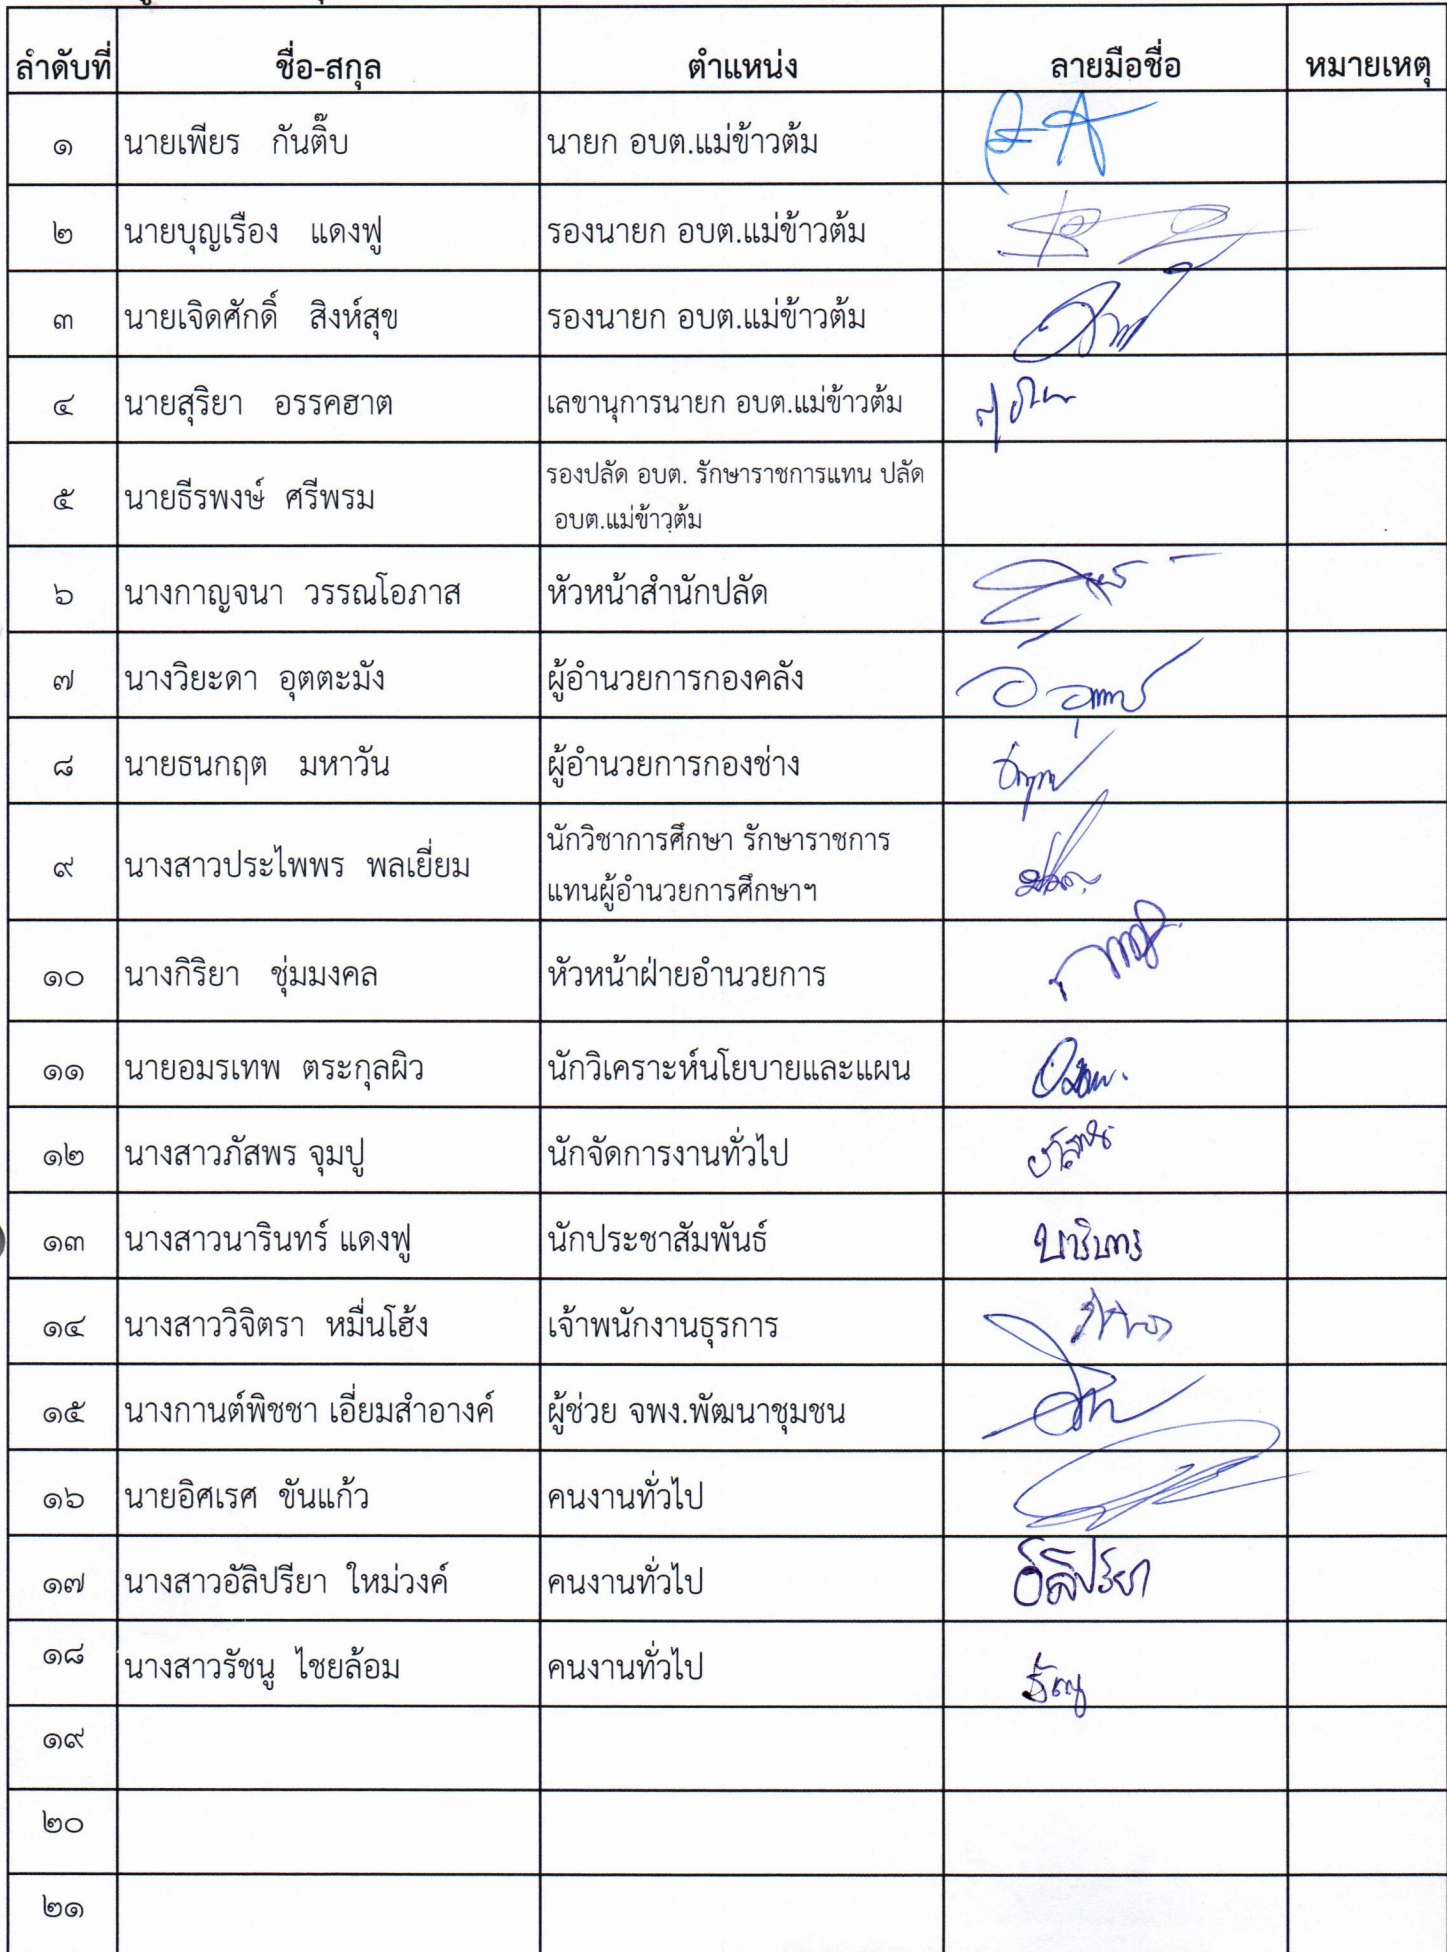 ลำดับที่ ชื่อ-สกุล ตำแหน่ง ลายมือชื่อ หมายเหตุ
๑ นายเพียร กันติ๊บ นายก อบต.แม่ข้าวต้ม
๒ นายบุญเรือง แดงฟู รองนายก อบต.แม่ข้าวต้ม
๓ นายเจิดศักดิ์ สิงห์สุข รองนายก อบต.แม่ข้าวต้ม
๔ นายสุริยา อรรคฮาต เลขานุการนายก อบต.แม่ข้าวต้ม
๕ นายธีรพงษ์ ศรีพรม รองปลัด อบต. รักษาราชการแทน ปลัด
อบต.แม่ข้าวต้ม
๖ นางกาญจนา วรรณโอภาส หัวหน้าสำนักปลัด
๗ นางวิยะดา อุตตะมัง ผู้อำนวยการกองคลัง
๘ นายธนกฤต มหาวัน ผู้อำนวยการกองช่าง
๙ นางสาวประไพพร พลเยี่ยม นักวิชาการศึกษา รักษาราชการ
แทนผู้อำนวยการศึกษาฯ
๑๐ นางกิริยา ชุ่มมงคล หัวหน้าฝ่ายอำนวยการ
๑๑ นายอมรเทพ ตระกุลผิว นักวิเคราะห์นโยบายและแผน
๑๒ นางสาวภัสพร จุมปู นักจัดการงานทั่วไป
๑๓ นางสาวนารินทร์ แดงฟู นักประชาสัมพันธ์
๑๔ นางสาววิจิตรา หมื่นโฮ้ง เจ้าพนักงานธุรการ
๑๕ นางกานต์พิชชา เอี่ยมสำอางค์ ผู้ช่วย จพง.พัฒนาชุมชน
๑๖ นายอิศเรศ ขันแก้ว คนงานทั่วไป
๑๗ นางสาวอัลิปรียา ใหม่วงค์ คนงานทั่วไป อัลิปรียา
๑๘ นางสาวรัชนู ไชยล้อม คนงานทั่วไป
๑๙
๒๐
๒๑